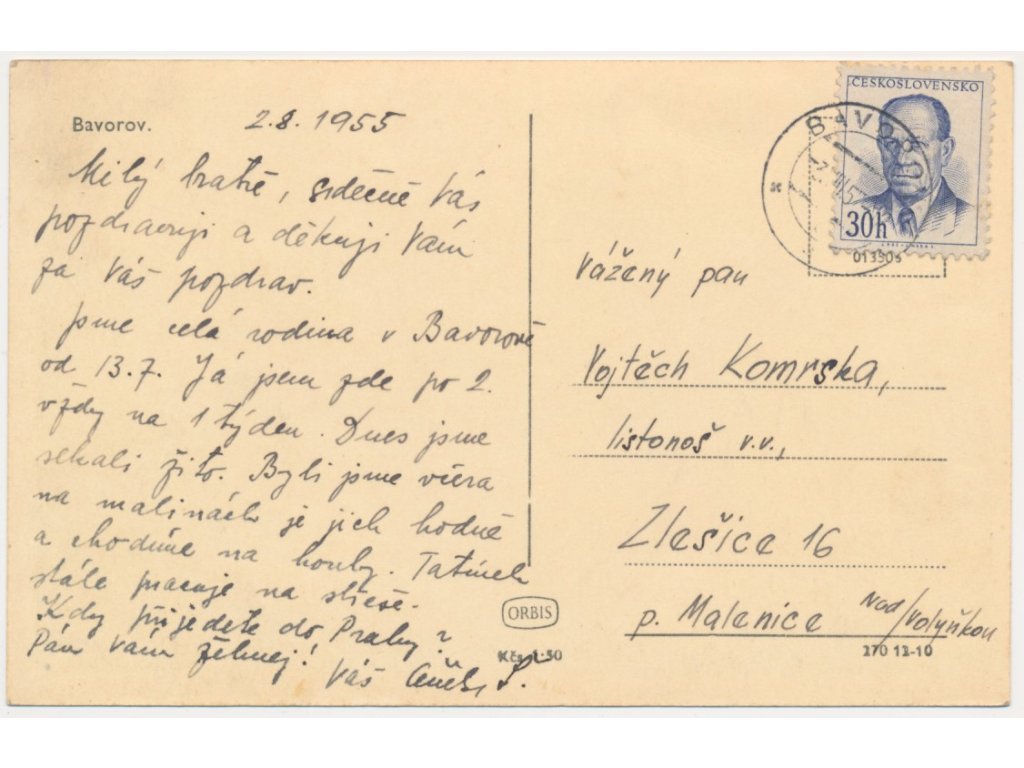 Bavorov.
2.8.1955
Milý bratře, srdečně Vás
pozdravuji a děkuji Vám
za Váš pozdrav.
Jsme celá rodina v Bavorově
od 13.7. Já jsem zde po 2.
vždy na 1 týden. Dnes jsme
sekali žito. Byli jsme včera
na malinách je jich hodně
a chodíme na houby. Tatínek
stále pracuje na střeše.
Kdy přijedete do Prahy?
Pán Vám žehnej!
Váš
ORBIS
Kčs 1·50
ČESKOSLOVENSKO
30h
BAVOROV
01350s
Vážený pan
Vojtěch Komrska,
listonoš v.v.,
Zlešice 16
p. Malenice Nad/Volyňkou
270 12-10